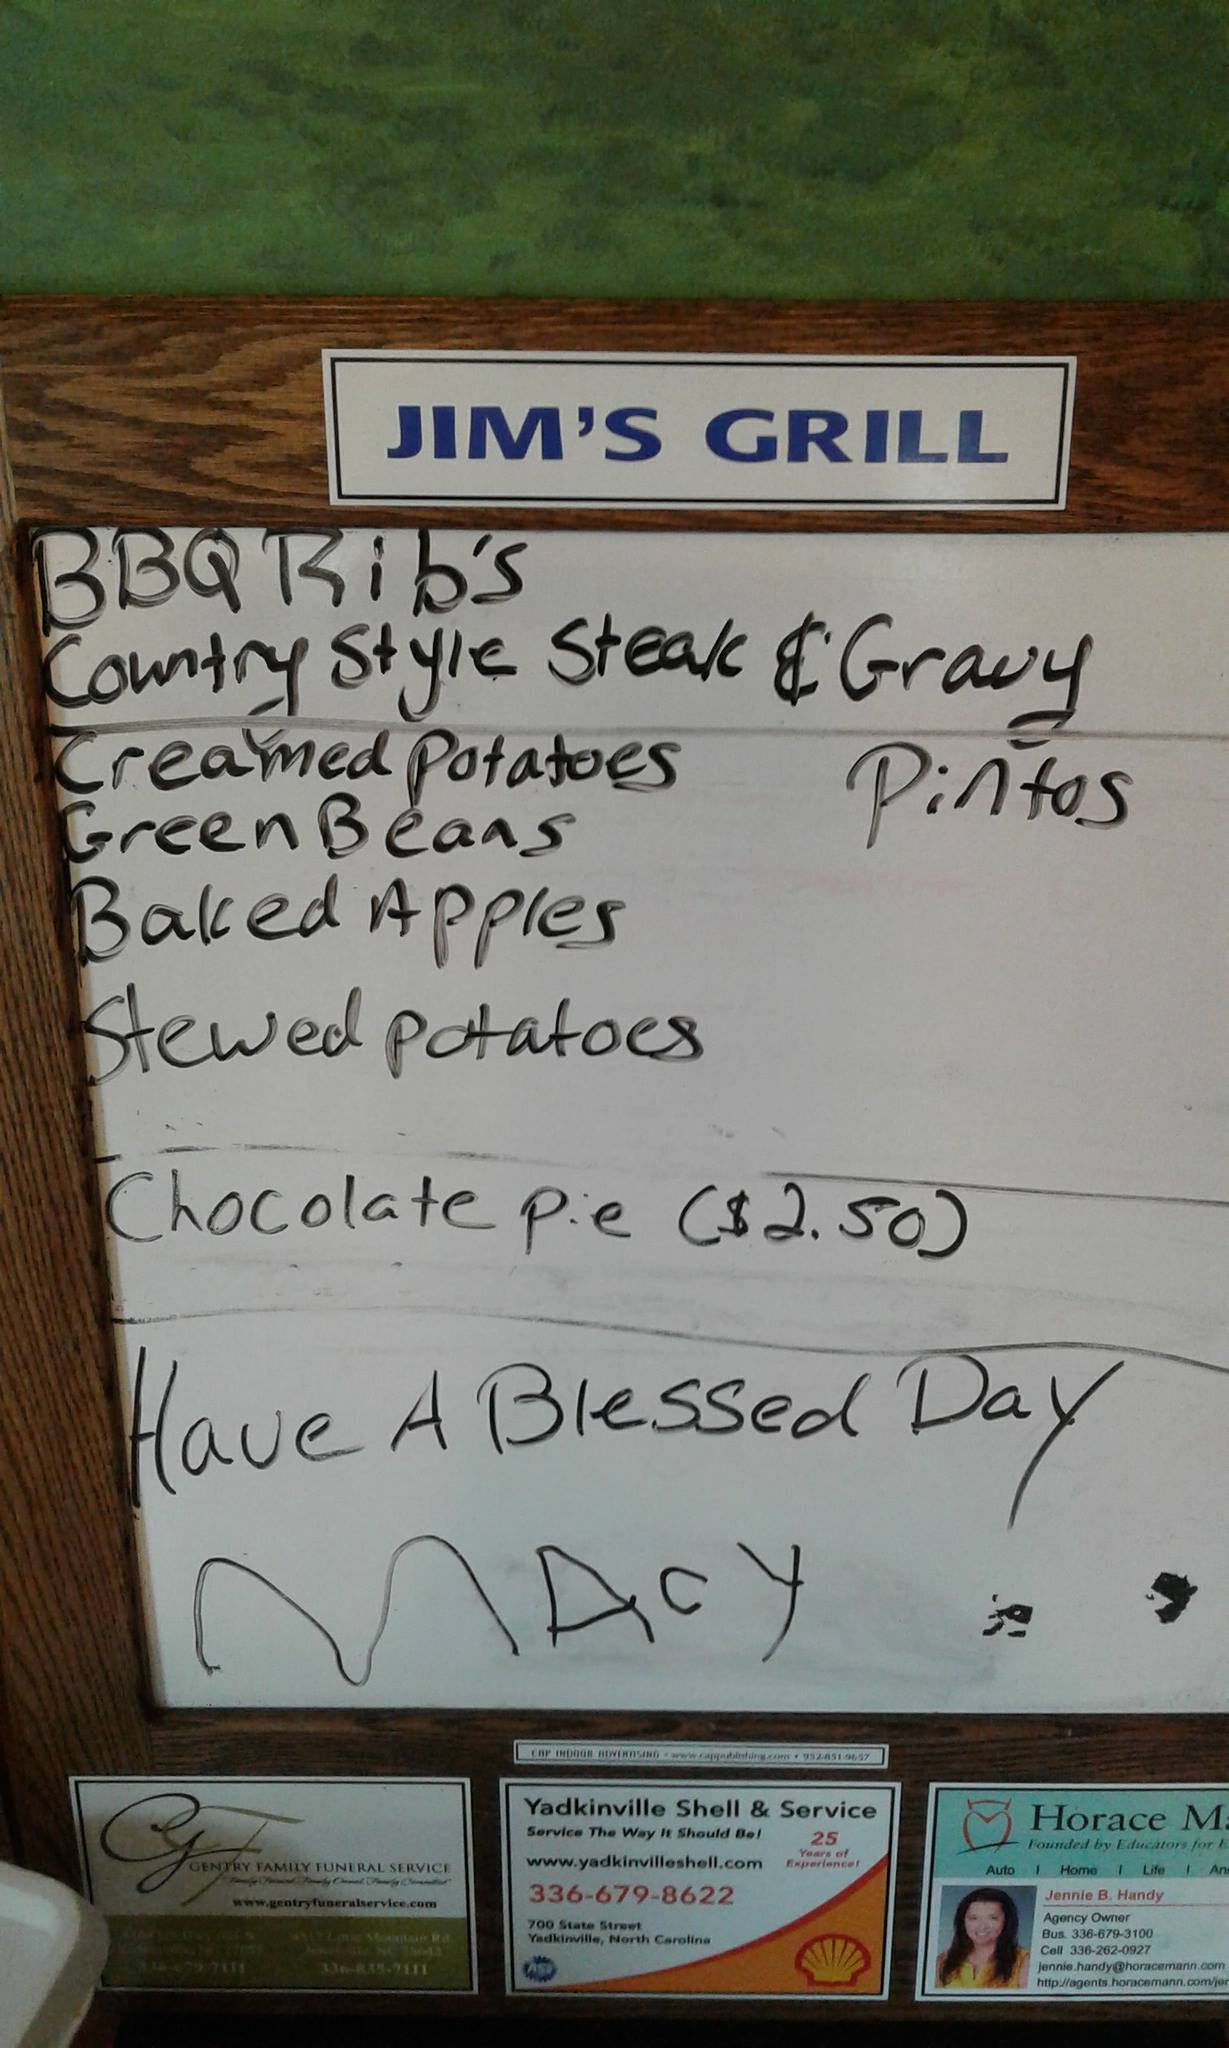 JIM'S GRILL
BBQ Rib's
Country Style Steak & Gravy
Creamed Potatoes Pintos
Green Beans
Baked Apples
Stewed potatoes
Chocolate pie ($2.50)
Have A Blessed Day
MAcy
CAP INDOOR ADVERTISING • www.cappublishing.com • 952-851-9657
GF
GENTRY FAMILY FUNERAL SERVICE
www.gentryfuneralservice.com
336-679-7111 336-835-7111
Yadkinville Shell & Service
Service The Way It Should Be!
25
Years of
Experience!
www.yadkinvilleshell.com
336-679-8622
700 State Street
Yadkinville, North Carolina
Horace Ma
Founded by Educators for E
Auto | Home | Life | An
Jennie B. Handy
Agency Owner
Bus. 336-679-3100
Cell 336-262-0927
jennie.handy@horacemann.com
http://agents.horacemann.com/jen